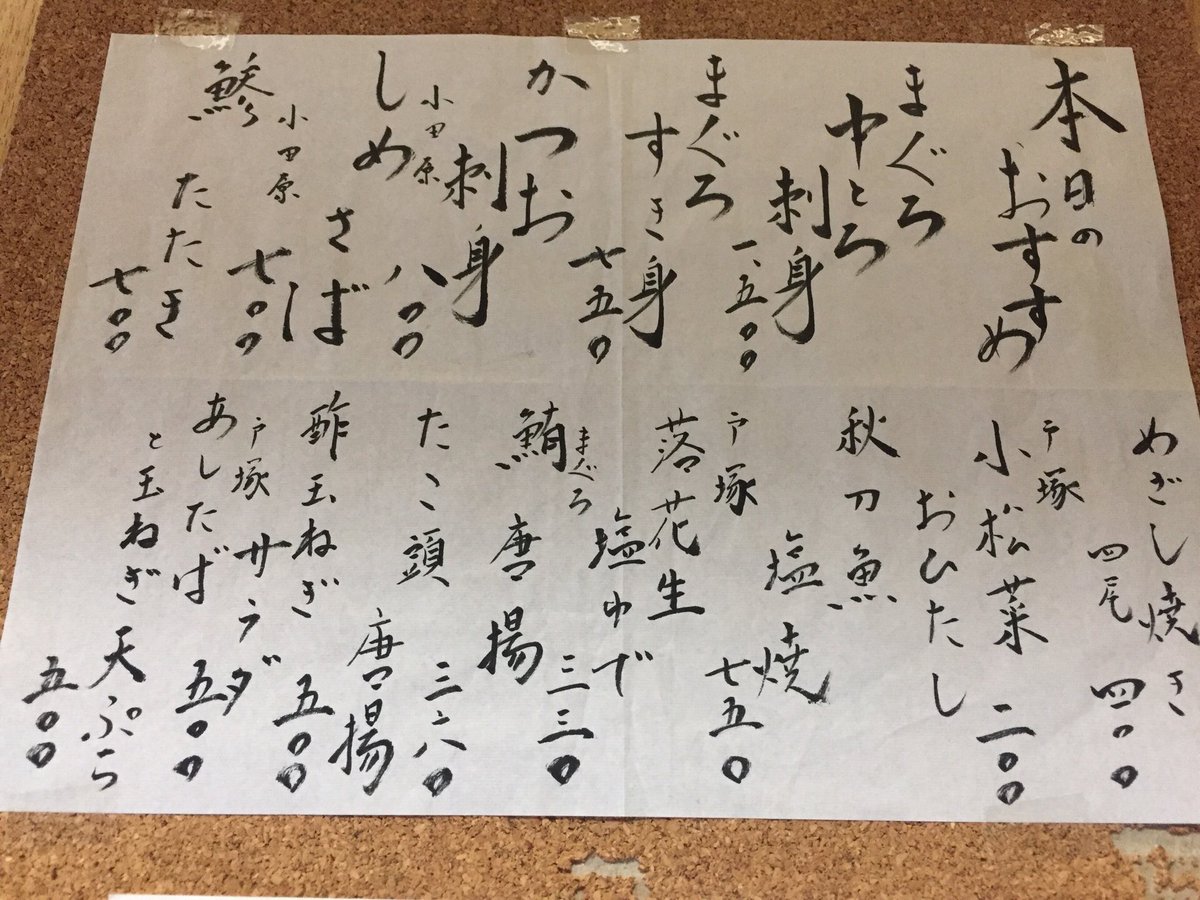 本日の
おすすめ
まぐろ
中とろ
刺身
一、五〇〇
まぐろ
すき身
七五〇
かつお
刺身
八〇〇
小田原
しめ
さば
七〇〇
小田原
鯵
たたき
七〇〇
めざし焼き
四尾
四〇〇
戸塚
小松菜
おひたし
二〇〇
秋刀魚
塩焼
七五〇
戸塚
落花生
塩ゆで
三三〇
まぐろ
鮪
唐揚
三六〇
たこ頭
唐揚
五〇〇
酢玉ねぎ
サラダ
五〇〇
戸塚
あしたば
と玉ねぎ
天ぷら
五〇〇